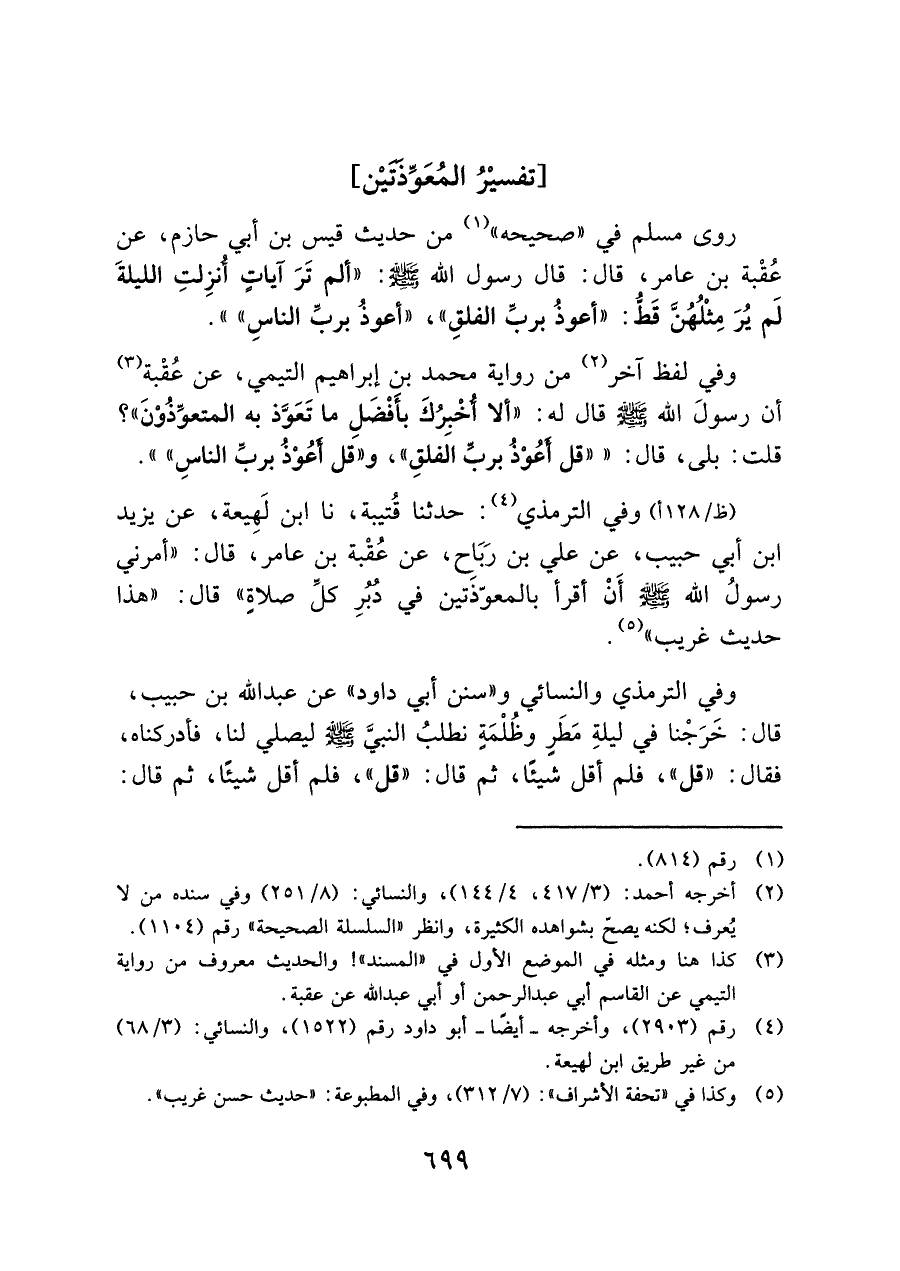 [تفسيْرُ المُعَوِّذَتَيْن]
روى مسلم في «صحيحه»(١) من حديث قيس بن أبي حازم، عن
عُقْبة بن عامر، قال: قال رسول الله ﷺ: «ألم تَرَ آياتٍ أُنزِلتِ الليلةَ
لَم يُرَ مِثْلُهُنَّ قَطُّ: «أعوذُ بربِّ الفلقِ»، «أعوذُ بربِّ الناسِ» ».
وفي لفظ آخر(٢) من رواية محمد بن إبراهيم التيمي، عن عُقْبة(٣)
أن رسولَ الله ﷺ قال له: «ألا أُخْبِرُكَ بأَفْضَلِ ما تَعَوَّذ به المتعوِّذُوْنَ»؟
قلت: بلى، قال: « «قل أَعُوْذُ بربِّ الفلقِ»، و«قل أَعُوْذُ بربِّ الناسِ» ».
(ظ/١٢٨أ) وفي الترمذي(٤): حدثنا قُتيبة، نا ابن لَهِيعة، عن يزيد
ابن أبي حبيب، عن علي بن رَبَاح، عن عُقْبة بن عامر، قال: «أمرني
رسولُ الله ﷺ أَنْ أقرأ بالمعوّذَتين في دُبُرِ كلِّ صلاةٍ» قال: «هذا
حديث غريب»(٥).
وفي الترمذي والنسائي و«سنن أبي داود» عن عبدالله بن حبيب،
قال: خَرَجْنا في ليلةِ مَطَرٍ وظُلْمَةٍ نطلبُ النبيَّ ﷺ ليصلي لنا، فأدركناه،
فقال: «قل»، فلم أقل شيئًا، ثم قال: «قل»، فلم أقل شيئًا، ثم قال:
(١) رقم (٨١٤).
(٢) أخرجه أحمد: (٣/ ٤١٧، ٤/ ١٤٤)، والنسائي: (٨/ ٢٥١) وفي سنده من لا
يُعرف؛ لكنه يصحّ بشواهده الكثيرة، وانظر «السلسلة الصحيحة» رقم (١١٠٤).
(٣) كذا هنا ومثله في الموضع الأول في «المسند»! والحديث معروف من رواية
التيمي عن القاسم أبي عبدالرحمن أو أبي عبدالله عن عقبة.
(٤) رقم (٢٩٠٣)، وأخرجه ـ أيضًا ـ أبو داود رقم (١٥٢٢)، والنسائي: (٣/ ٦٨)
من غير طريق ابن لهيعة.
(٥) وكذا في «تحفة الأشراف»: (٧/ ٣١٢)، وفي المطبوعة: «حديث حسن غريب».
٦٩٩